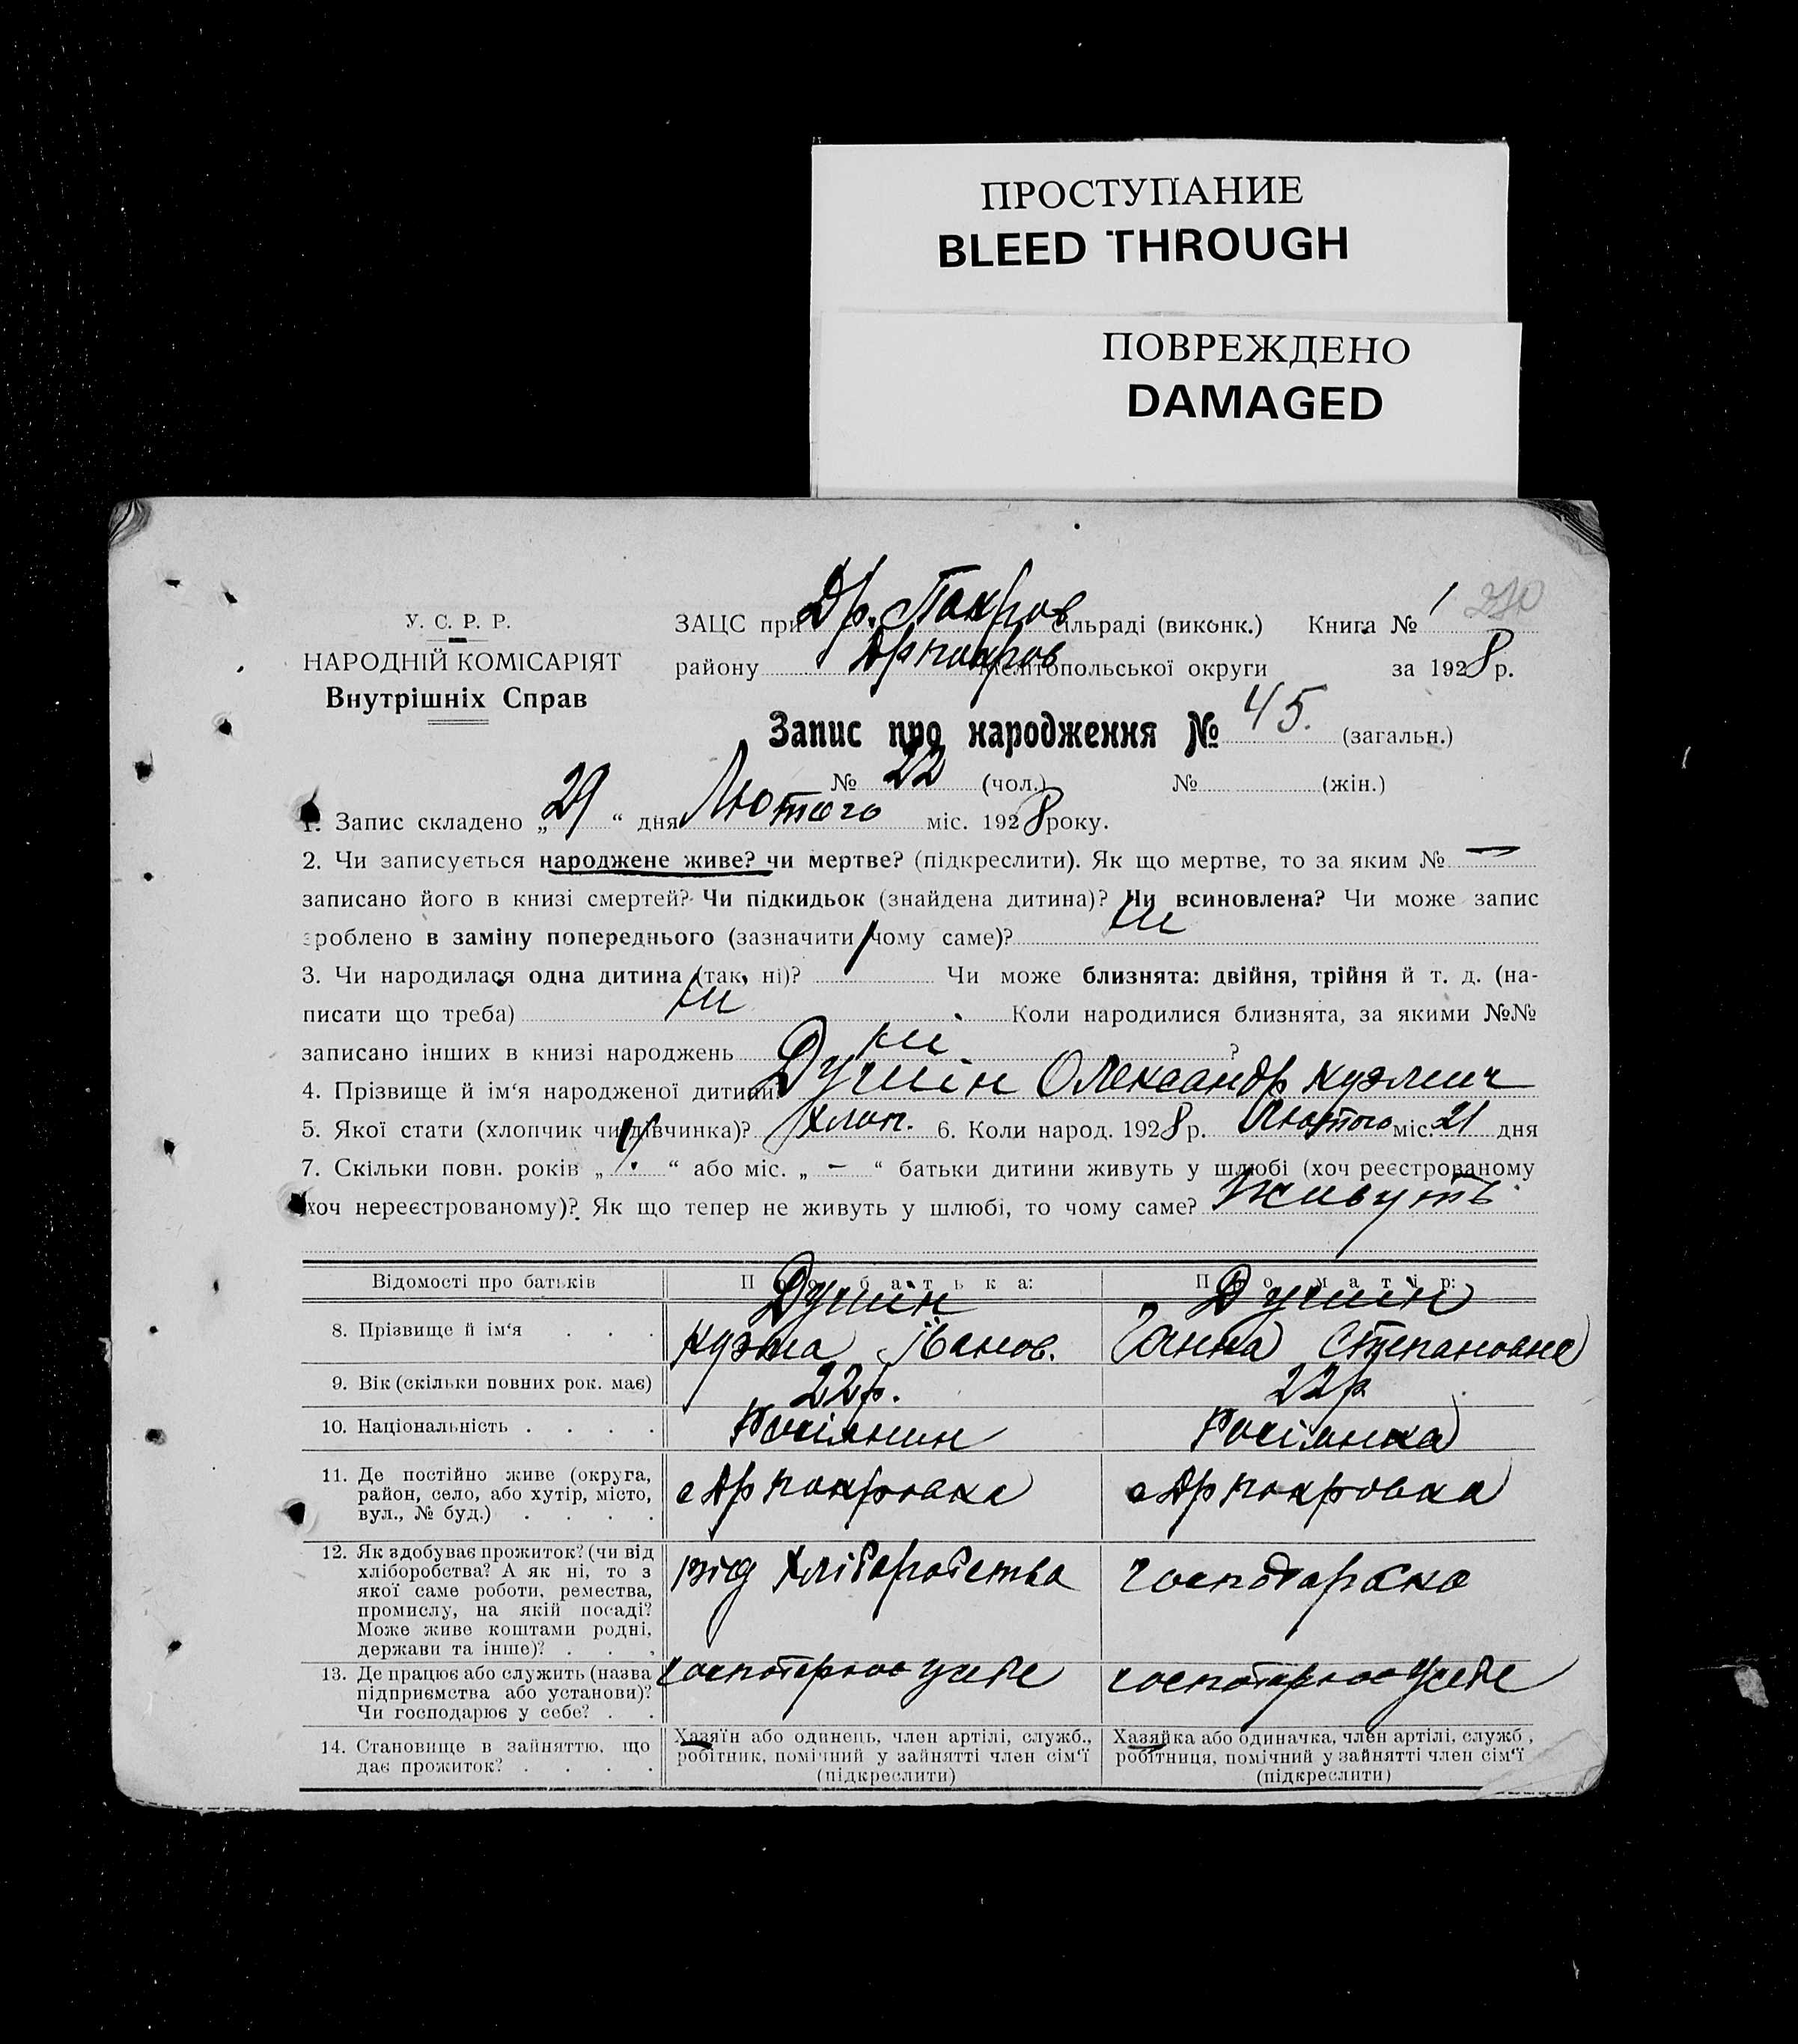 ПРОСТУПАНИЕ
BLEED THROUGH
ПОВРЕЖДЕНО
DAMAGED
У. С. Р. Р.
НАРОДНІЙ КОМІСАРІЯТ
Внутрішніх Справ
ЗАЦС при Др. Покров сільраді (виконк.) Книга № 1 270
району Др покров Мелітопольської округи за 1928 р.
Запис про народження № 45. (загальн.)
№ 22 (чол.) № (жін.)
1. Запис складено „29“ дня Лютого міс. 1928 року.
2. Чи записується народжене живе? чи мертве? (підкреслити). Як що мертве, то за яким № —
записано його в книзі смертей? Чи підкидьок (знайдена дитина)? Чи всиновлена? Чи може запис
зроблено в заміну попереднього (зазначити чому саме)? ні
3. Чи народилася одна дитина (так, ні)? Чи може близнята: двійня, трійня й т. д. (на-
писати що треба) ні Коли народилися близнята, за якими №№
записано інших в книзі народжень ні ?
4. Прізвище й ім‘я народженої дитини Душін Олександр Кузмич
5. Якої стати (хлопчик чи дівчинка)? Хлоп. 6. Коли народ. 1928 р. Лютого міс. 21 дня
7. Скільки повн. років „ “ або міс. „ — “ батьки дитини живуть у шлюбі (хоч реєстрованому
хоч нереєстрованому)? Як що тепер не живуть у шлюбі, то чому саме? Живуть
Відомості про батьків
Про батька:
Про матір:
8. Прізвище й ім‘я . . .
Душін
Кузма Іванов.
Душін
Ганна Степановна
9. Вік (скільки повних рок. має)
22р.
22р
10. Національність . . . .
Росіянин
Росіянка
11. Де постійно живе (округа,
район, село, або хутір, місто,
вул., № буд.) . . . .
с Др покровка
с Др покровка
12. Як здобуває прожиток? (чи від
хліборобства? А як ні, то з
якої саме роботи, ремества,
промислу, на якій посаді?
Може живе коштами родні,
держави та інше)? . . .
від хліборобства
господарска
13. Де працює або служить (назва
підприємства або установи)?
Чи господарює у себе? . .
господарює у себе
господарює у себе
14. Становище в зайняттю, що
дає прожиток? . . . .
Хазяїн або одинець, член артілі, служб.,
робітник, помічний у зайнятті член сім‘ї
(підкреслити)
Хазяйка або одиначка, член артілі, служб ,
робітниця, помічний у зайнятті член сім‘ї
(підкреслити)